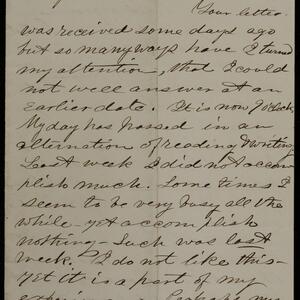 Your letter
was received some days ago
but so many ways have I turned
my attention, that I could
not well answer at an
Earlier date. It is now 9 o'clock,
My day has passed in an
alternation of reading & writing.
Last week I did not accom
plish much. Some times I
seem to be very busy all the
while - yet accomplish
nothing - Such was last
week. I do not like this -
yet it is a part of my